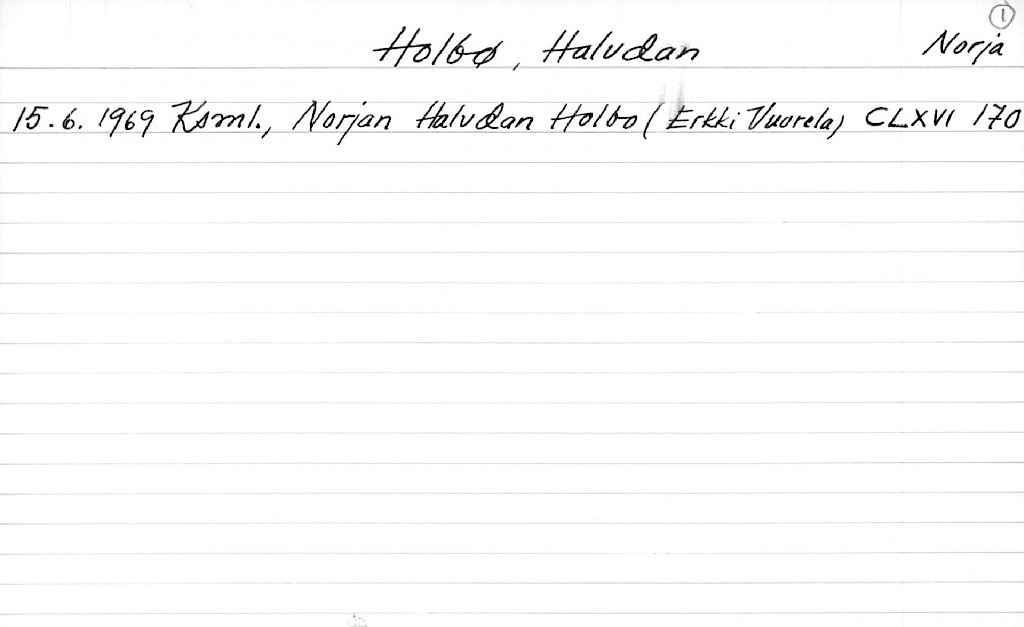 ①
Holbø, Halvdan Norja
15.6. 1969 Ksml., Norjan Halvdan Holbo (Erkki Vuorela) CLXVI 170